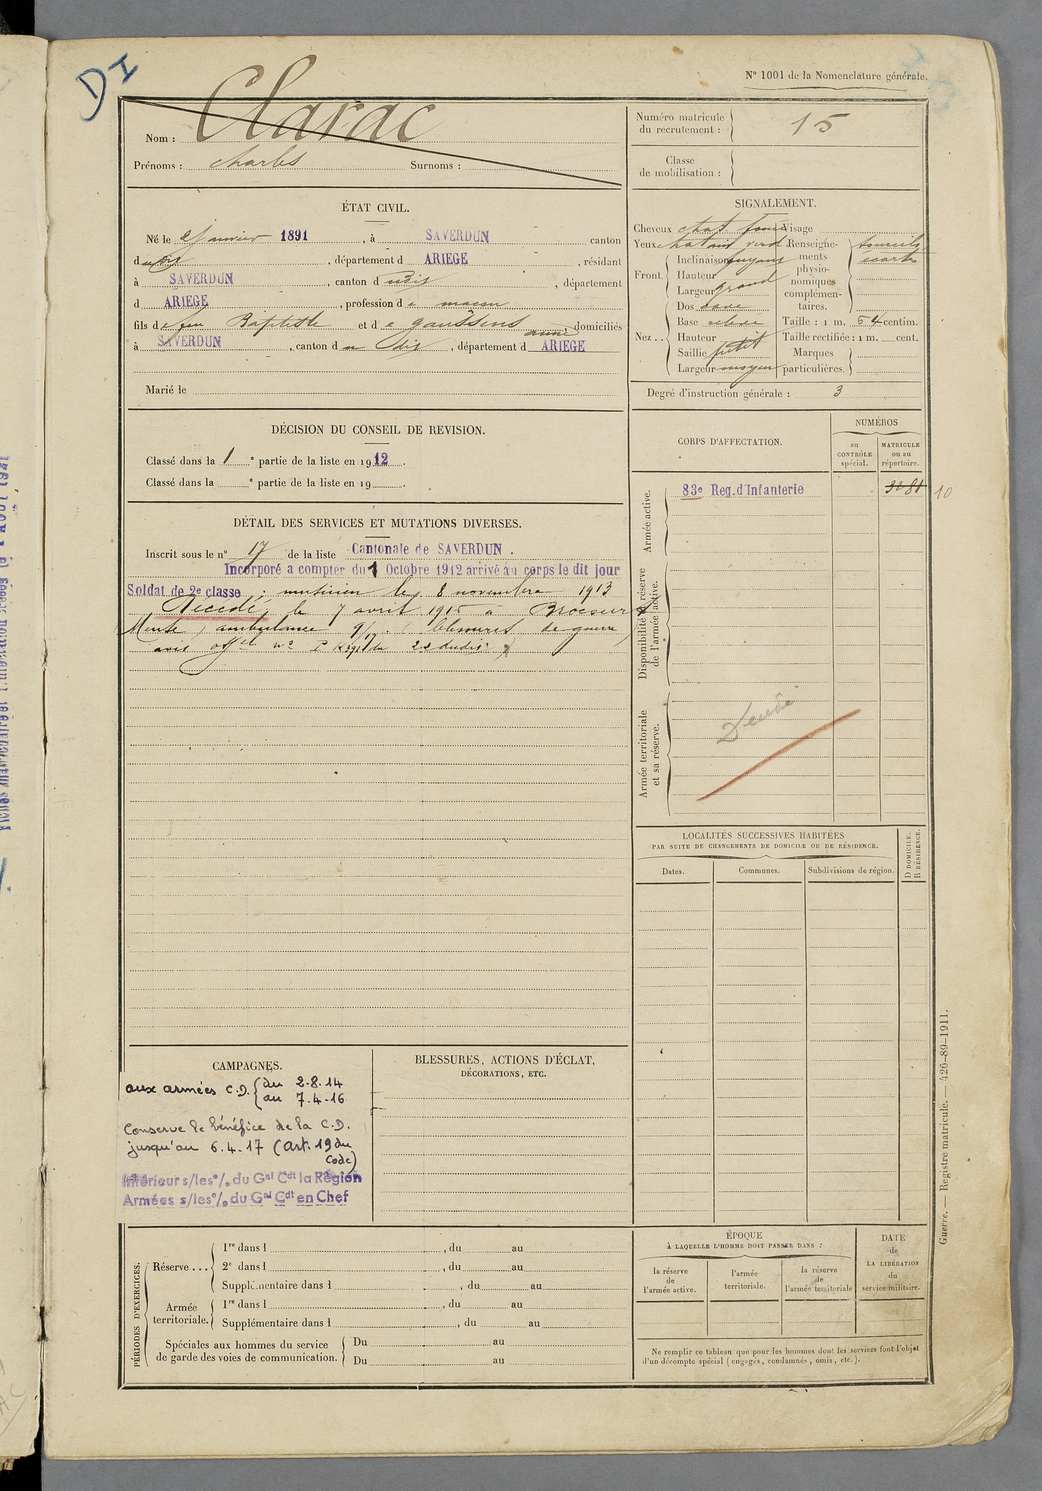 DI
N° 1001 de la Nomenclature générale.
Nom : Clarac
Prénoms : Charles Surnoms :
Numéro matricule du recrutement : 15
Classe de mobilisation :
ÉTAT CIVIL.
Né le 2 janvier 1891, à SAVERDUN canton
d udit, département d ARIEGE, résidant
à SAVERDUN, canton d udit, département
d ARIEGE, profession d e maçon
fils d e feu Baptiste et d e Gaussens anne, domiciliés
à SAVERDUN, canton d u dit, département d ARIEGE
Marié le
SIGNALEMENT.
Cheveux chat. foncé Visage
Yeux chatain verd. Renseignements physionomiques complémentaires. sourcils écartés
Front. Inclinaison fuyant
Hauteur
Largeur grand
Nez .. Dos cave
Base relevée
Hauteur
Saillie petit
Largeur moyen
Taille : 1 m. 54 centim.
Taille rectifiée : 1 m. cent.
Marques particulières.
Degré d'instruction générale : 3
DÉCISION DU CONSEIL DE REVISION.
Classé dans la 1e partie de la liste en 1912.
Classé dans la e partie de la liste en 19
CORPS D'AFFECTATION.
NUMÉROS
au CONTRÔLE spécial.
MATRICULE ou au répertoire.
Armée active.
83e Reg. d'Infanterie 3281 10
Disponibilité et réserve de l'armée active.
Armée territoriale et sa réserve.
Décédé
DÉTAIL DES SERVICES ET MUTATIONS DIVERSES.
Inscrit sous le n° 17 de la liste Cantonale de SAVERDUN.
Incorporé a compter du 1 Octobre 1912 arrivé au corps le dit jour
Soldat de 2e classe ; musicien le 8 novembre 1913
Décédé le 7 avril 1916 à
ambulance 9/17 (blessures de guerre)
avis offel n°
LOCALITÉS SUCCESSIVES HABITÉES
PAR SUITE DE CHANGEMENTS DE DOMICILE OU DE RÉSIDENCE.
Dates.
Communes.
Subdivisions de région.
D DOMICILE.
R RÉSIDENCE.
CAMPAGNES.
aux armées C.D. { du 2.8.14
au 7.4.16
Conserve le bénéfice de la C.D.
jusqu'au 6.4.17 (Art. 19 du
Code)
Intérieur s/les°/° du Gal Cdt la Région
Armées s/les°/° du Gal Cdt en Chef
BLESSURES, ACTIONS D'ÉCLAT,
DÉCORATIONS, ETC.
PÉRIODES D'EXERCICES.
Réserve ...
1re dans l , du au
2e dans l , du au
Supplémentaire dans l , du au
Armée territoriale.
1re dans l , du au
Supplémentaire dans l , du au
Spéciales aux hommes du service
de garde des voies de communication.
Du au
Du au
ÉPOQUE
À LAQUELLE L'HOMME DOIT PASSER DANS :
la réserve de l'armée active.
l'armée territoriale.
la réserve de l'armée territoriale
DATE
de
LA LIBÉRATION
du
service militaire.
Ne remplir ce tableau que pour les hommes dont les services font l'objet
d'un décompte spécial (engagés, condamnés, omis, etc.).
Guerre. — Registre matricule. — 426-89-1911.